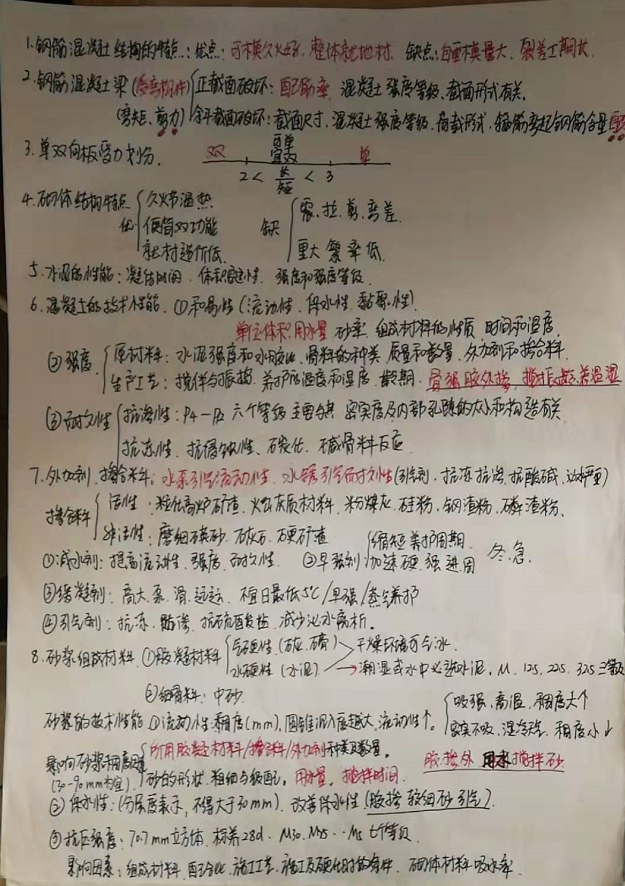 1.钢筋混凝土结构的特点:优点:可模久火好,整体就地材. 缺点:自重模量大、裂差工期长.
2.钢筋混凝土梁(受弯构件) 正截面破坏:配筋率、混凝土强度等级、截面形式有关.
(弯矩、剪力) 斜截面破坏:截面尺寸、混凝土强度等级、荷载形式、箍筋弯起钢筋含量
3.单双向板受力划分. 双 单
2 < 长/短 < 3
4.砌体结构特点 优 久火节温热 缺 震、拉、剪、弯差.
便简功能
就材造价低. 重大繁率低.
5.水泥的性能:凝结时间、体积安定性、强度和强度等级.
6.混凝土的技术性能. ①和易性(流动性、保水性、黏聚性)
单位体积用水量 砂率、组成材料的性质 时间和温度.
②强度 原材料:水泥强度和水胶比、骨料的种类、质量和数量、外加剂和掺合料.
生产工艺:搅拌与振捣、养护的温度和湿度、龄期.
③耐久性 抗渗性:P4-P12 六个等级 主要与其密实度及内部孔隙的大小和构造有关
抗冻性、抗侵蚀性、碳化、碱骨料反应
7.外加剂、掺合料: (引气剂、抗冻抗渗、抗酸碱、
掺合料 活性:粒化高炉矿渣、火山灰质材料、粉煤灰、硅粉、钢渣粉、磷渣粉.
非活性:磨细石英砂、石灰石、硬矿渣
①减水剂:提高流动性、强度、耐久性. ②早强剂 缩短养护周期 加速硬、强、进、周 冬、急.
③缓凝剂:高、大、泵、滑、远 不宜日最低5℃/早强/蒸气养护
④引气剂:抗冻、防渗、抗硫酸盐、减少泌水离析.
8.砂浆组成材料 ①胶凝材料 气硬性(石灰、石膏) 干燥环境可气可水.
水硬性(水泥) 潮湿或水中必须水泥、M、
②细骨料:中砂.
砂浆的技术性能 ①流动性稠度(mm)、圆锥沉入度越大、流动性↑. 吸强、高温、稠度大↑
密实不吸、湿冷天气、稠度小↓
影响砂浆稠度因素 所用胶凝材料/掺合料/外加剂种类及数量. 胶掺外 用水 搅拌砂
(30-90mm为宜) 砂的形状、粗细与级配、用水量、搅拌时间.
②保水性:(分层度表示,不得大于30mm)、改善保水性(胶掺较细砂引气).
③抗压强度:70.7mm立方体、标养28d. M30、M25…M5 七个等级.
影响因素:组成材料、配合比、施工工艺、施工及硬化时的条件、砌体材料吸水率.